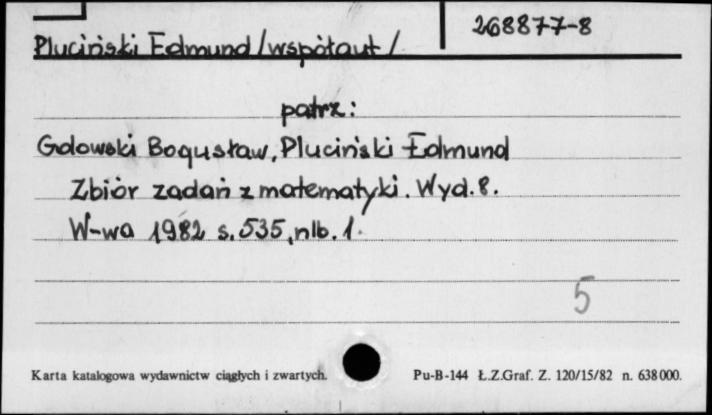 268877-8
Pluciński Edmund /współaut/
patrz:
Gdowski Bogusław, Pluciński Edmund
Zbiór zadań z matematyki. Wyd. 8.
W-wa 1982 s. 535, nlb. 1.
5
Karta katalogowa wydawnictw ciągłych i zwartych. Pu-B-144 Ł.Z.Graf. Z. 120/15/82 n. 638000.